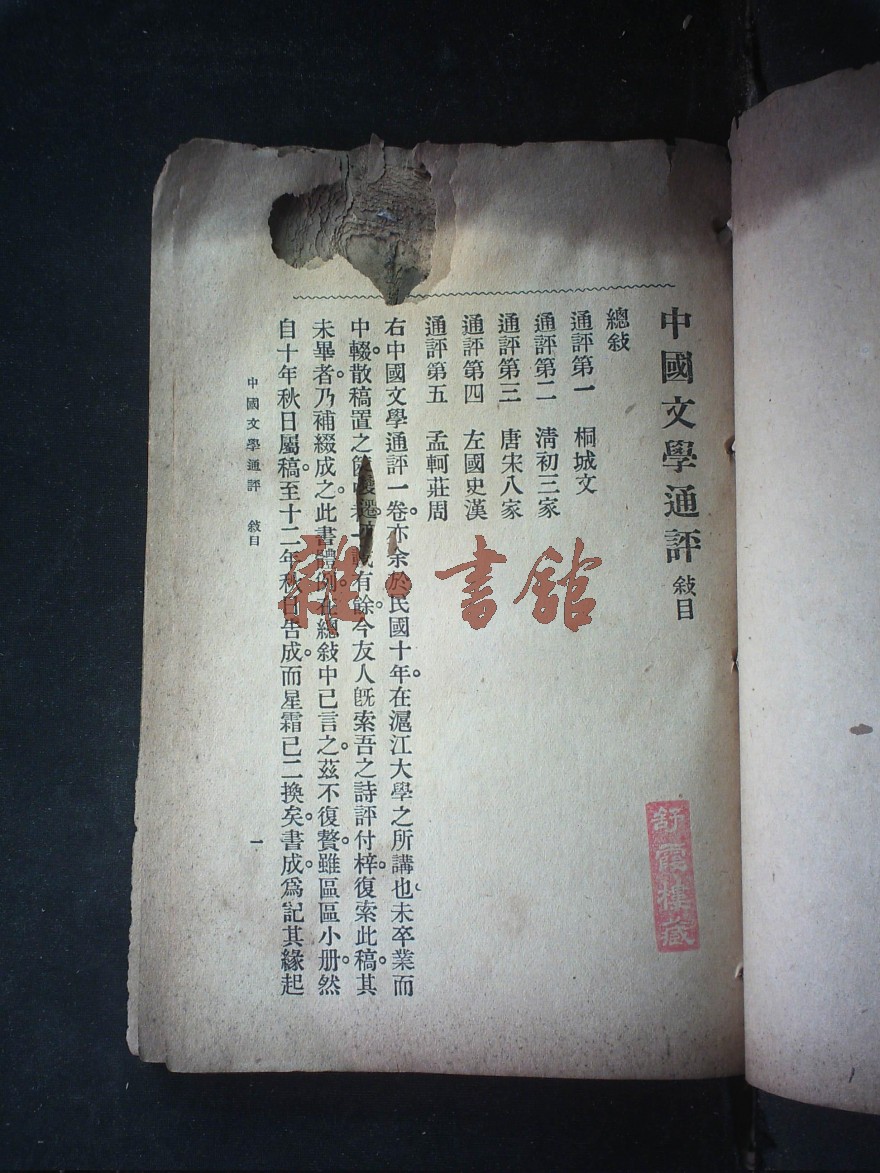 中國文學通評 敍目
總敍
通評第一 桐城文
通評第二 淸初三家
通評第三 唐宋八家
通評第四 左國史漢
通評第五 孟軻莊周
右中國文學通評一卷。亦余於民國十年。在滬江大學之所講也。未卒業而
中輟。散稿置之篋 有餘。今友人旣索吾之詩評付梓。復索此稿。其
未畢者。乃補綴成之。此書體例。在總敍中已言之。茲不復贅。雖區區小册。然
自十年秋日屬稿。至十二年秋日吿成。而星霜已二換矣。書成。爲記其緣起
中國文學通評 敍目
一
舒霞樓藏
雜·書館